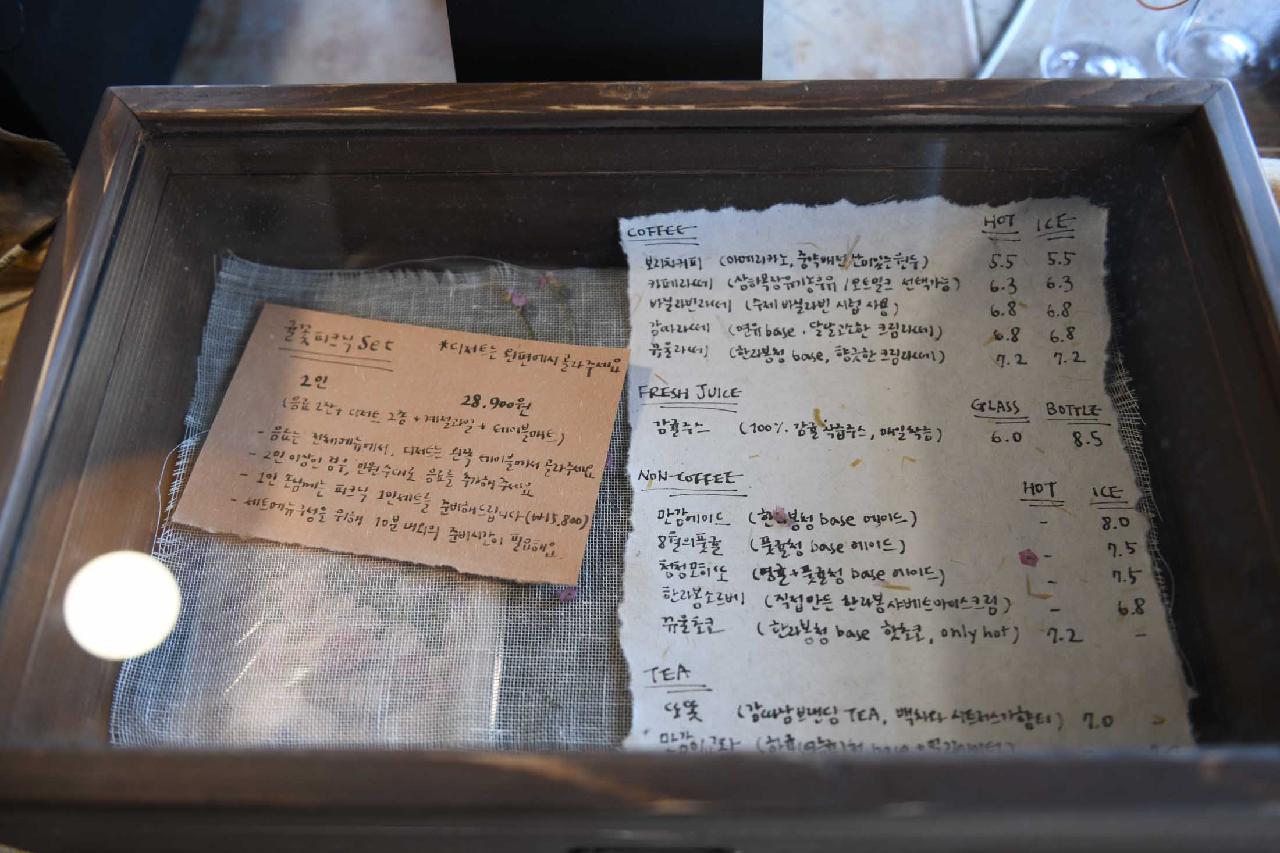 귤꽃 피크닉 Set
*디저트는 왼편에서 골라주세요
2인
28.900원
(음료 2잔 + 디저트 2종 + 계절과일 + 테이블매트)
- 음료는 전체메뉴에서, 디저트는 왼쪽 테이블에서 골라주세요
- 2인 이상인 경우, 인원수대로 음료를 추가해주세요
- 1인 손님께는 피크닉 1인세트를 준비해드립니다 (₩15,800)
- 세트메뉴 구성을 위해 10분 내외의 준비시간이 필요해요
COFFEE HOT ICE
보리치커피 (아메리카노, 중약배전 산미있는 원두) 5.5 5.5
카페라떼 (상하목장유기농우유 / 오트밀크 선택가능) 6.3 6.3
바닐라빈라떼 (수제 바닐라빈 시럽 사용) 6.8 6.8
감자라떼 (연유 base · 달달고소한 크림라떼) 6.8 6.8
뀨울라떼 (한라봉청 base, 향긋한 크림라떼) 7.2 7.2
FRESH JUICE GLASS BOTTLE
감귤주스 (100% 감귤 착즙주스, 매일착즙) 6.0 8.5
NON-COFFEE HOT ICE
만감에이드 (한라봉청 base 에이드) - 8.0
8월의풋귤 (풋귤청 base 에이드) - 7.5
청청모히또 (영귤+풋귤청 base 에이드) - 7.5
한라봉소르베 (직접만든 한라봉샤베트아이스크림) - 6.8
뀨울초코 (한라봉청 base 핫초코, only hot) 7.2 -
TEA
(감따남브랜딩 TEA, 백차와 시트러스가향티) 7.0